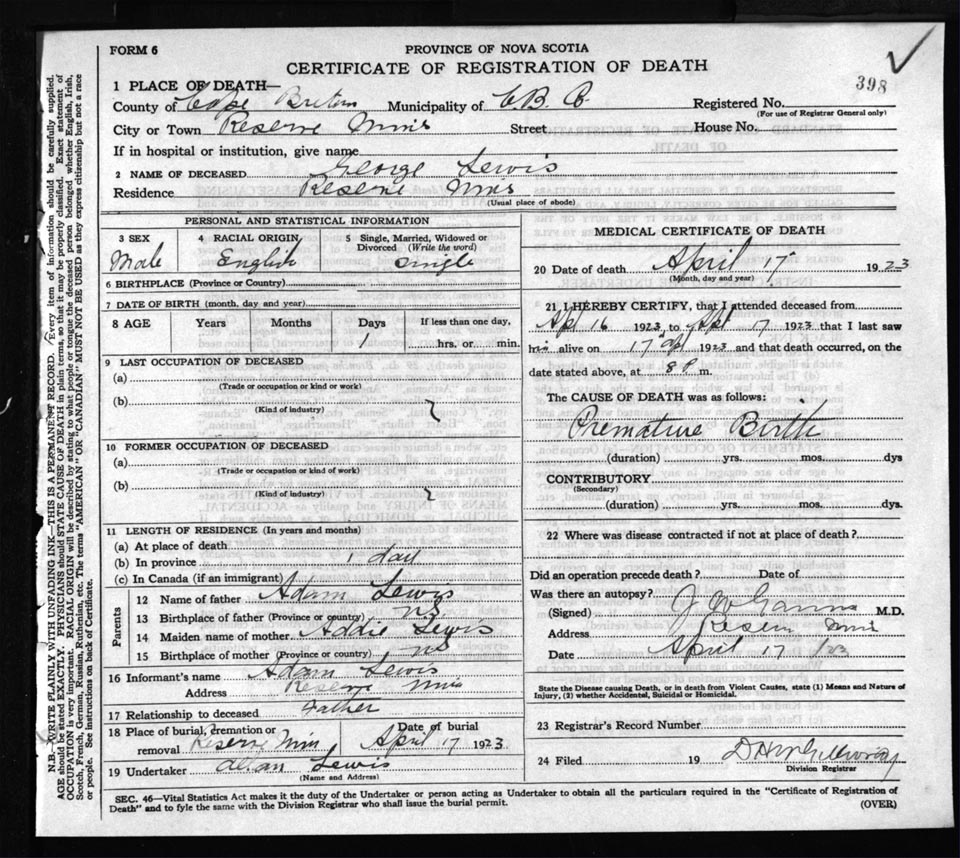 FORM 6
PROVINCE OF NOVA SCOTIA
CERTIFICATE OF REGISTRATION OF DEATH
398
1 PLACE OF DEATH—
County of Cape Breton Municipality of C.B. Registered No.
(For use of Registrar General only)
City or Town Reserve Mines Street House No.
If in hospital or institution, give name
2 NAME OF DECEASED George Lewis
Residence Reserve Mines
(Usual place of abode)
PERSONAL AND STATISTICAL INFORMATION
3 SEX Male
4 RACIAL ORIGIN English
5 Single, Married, Widowed or Divorced (Write the word) Single
6 BIRTHPLACE (Province or Country)
7 DATE OF BIRTH (month, day and year)
8 AGE Years Months Days 1 If less than one day, hrs. or min.
9 LAST OCCUPATION OF DECEASED
(a)
(Trade or occupation or kind or work)
(b)
(Kind of industry)
10 FORMER OCCUPATION OF DECEASED
(a)
(Trade or occupation or kind of work)
(b)
(Kind of industry)
11 LENGTH OF RESIDENCE (In years and months)
(a) At place of death
(b) In province 1 day
(c) In Canada (if an immigrant)
Parents
12 Name of father Adam Lewis
13 Birthplace of father (Province or country) NS
14 Maiden name of mother Addie Lewis
15 Birthplace of mother (Province or country) NS
16 Informant's name Adam Lewis
Address Reserve Mines
17 Relationship to deceased Father
18 Place of burial, cremation or removal Reserve Mines Date of burial April 17 1923
19 Undertaker Lewis
(Name and Address)
MEDICAL CERTIFICATE OF DEATH
20 Date of death April 17 1923
(Month, day and year)
21 I HEREBY CERTIFY, that I attended deceased from
Apl 16 1923, to Apl 17 1923 that I last saw
alive on 17 Apl 1923 and that death occurred, on the
date stated above, at 8 P. m.
The CAUSE OF DEATH was as follows:
Premature Birth
(duration) yrs. mos. dys
CONTRIBUTORY
(Secondary)
(duration) yrs. mos. dys.
22 Where was disease contracted if not at place of death?
Did an operation precede death? Date of
Was there an autopsy?
(Signed) M.D.
Address Reserve Mines
Date April 17 /23
State the Disease causing Death, or in death from Violent Causes, state (1) Means and Nature of
Injury, (2) whether Accidental, Suicidal or Homicidal.
23 Registrar's Record Number
24 Filed 19
Division Registrar
SEC. 46—Vital Statistics Act makes it the duty of the Undertaker or person acting as Undertaker to obtain all the particulars required in the "Certificate of Registration of
Death" and to fyle the same with the Division Registrar who shall issue the burial permit.
(OVER)
N.B.—WRITE PLAINLY WITH UNFADING INK—THIS IS A PERMANENT RECORD. Every item of information should be carefully supplied.
AGE should be stated EXACTLY. PHYSICIANS should STATE CAUSE OF DEATH in plain terms, so that it may be properly classified. Exact statement of
OCCUPATION is very important. RACIAL ORIGIN will be described by stating to what people or tongue the deceased person belonged whether English, Irish,
Scotch, French, German, Russian, Ruthenian, etc. The terms "AMERICAN" OR "CANADIAN" MUST NOT BE USED as they express citizenship but not a race
or people. See instructions on back of Certificate.